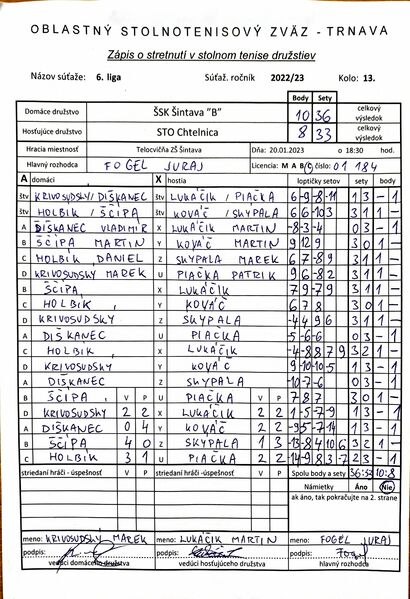 OBLASTNÝ STOLNOTENISOVÝ ZVÄZ - TRNAVA
Zápis o stretnutí v stolnom tenise družstiev
Názov súťaže: 6. liga Súťaž. ročník 2022/23 Kolo: 13.
Body Sety
Domáce družstvo ŠSK Šintava "B" 10 36 celkový výsledok
Hosťujúce družstvo STO Chtelnica 8 33 celkový výsledok
Hracia miestnosť Telocvičňa ZŠ Šintava Dňa: 20.01.2023 o 18:30 hod.
Hlavný rozhodca FOGEL JURAJ Licencia: M A B C, číslo: 01 184
A domáci X hostia loptičky setov sety body
štv KRIVOSUDSKÝ/DIŠKANEC štv LUKÁČIK / PIAČKA 6 -9 -8 -11 1 3 - 1
štv HOLBIK / ŠČIPA štv KOVÁČ / SKYPALA 6 6 -10 3 3 1 1 -
A DIŠKANEC VLADIMÍR X LUKÁČIK MARTIN -8 -3 -4 0 3 - 1
B ŠČIPA MARTIN Y KOVÁČ MARTIN 9 12 9 3 0 1 -
C HOLBIK DANIEL Z SKYPALA MAREK 6 7 -8 9 3 1 1 -
D KRIVOSUDSKÝ MAREK U PIAČKA PATRIK 9 6 -8 2 3 1 1 -
B ŠČIPA X LUKÁČIK 7 9 -7 9 3 1 1 -
C HOLBIK Y KOVÁČ 6 7 8 3 0 1 -
D KRIVOSUDSKÝ Z SKYPALA -4 4 9 6 3 1 1 -
A DIŠKANEC U PIAČKA -5 -6 -6 0 3 - 1
C HOLBIK X LUKÁČIK -4 8 -8 7 9 3 2 1 -
D KRIVOSUDSKÝ Y KOVÁČ 9 -10 -10 -5 1 3 - 1
A DIŠKANEC Z SKYPALA -10 -7 -6 0 3 - 1
B ŠČIPA V P U PIAČKA V P 7 8 7 3 0 1 -
D KRIVOSUDSKÝ 2 2 X LUKÁČIK 2 2 1 3 - 1
A DIŠKANEC 0 4 Y KOVÁČ 2 2 1 3 - 1
B ŠČIPA 4 0 Z SKYPALA 1 3 3 2 1 -
C HOLBIK 3 1 U PIAČKA 2 2 2 3 - 1
striedaní hráči - úspešnosť V P striedaní hráči - úspešnosť V P Spolu body a sety 10:8
Námietky Áno Nie
ak áno, tak pokračujte na 2. strane
meno: KRIVOSUDSKÝ MAREK meno: LUKÁČIK MARTIN meno: FOGEL JURAJ
podpis: podpis: podpis:
vedúci domáceho družstva vedúci hosťujúceho družstva hlavný rozhodca